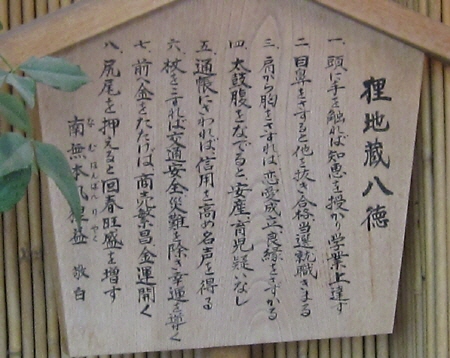 狸地蔵八徳
一、頭に手を触れば知恵を授かり学業上達す
二、目鼻をさすると他を抜き合格当選就職きまる
三、肩から胸をさすれば恋愛成立良縁をさずかる
四、太鼓腹をなでると安産育児疑いなし
五、通帳にさわれば信用を高め名声を得る
六、杖をさすれば交通安全災難を除き幸運を導く
七、前八金をたたけば商売繁昌金運開く
八、尻尾を押えると回春旺盛を増す
南無本 狸益 敬白